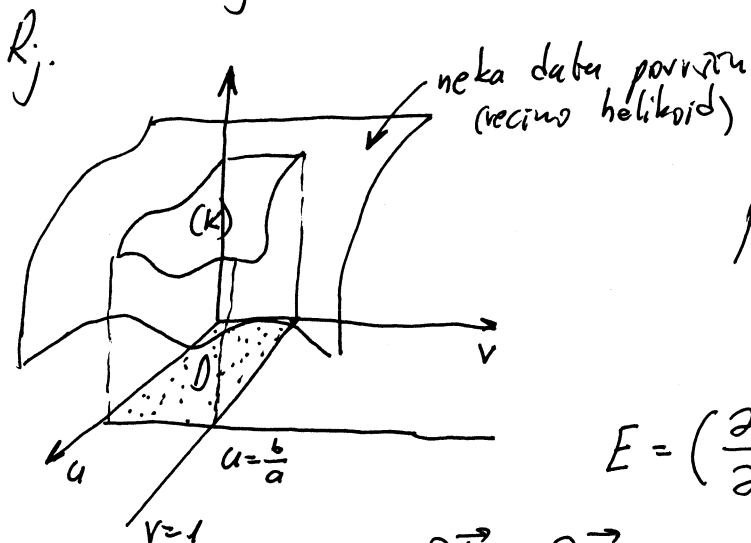 Rj.
neka data površin
(recimo helikoid)
(K)
D
v
u
u = b/a
v = 1
E = (∂